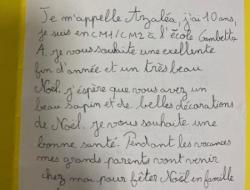 Je m'appelle Azaléa, j'ai 10 ans,
je suis en CM1/CM2 à l'école Gambetta
A, je vous souhaite une excellente
fin d'année et un très beau
Noël, j'éspère que vous avez un
beau sapin et de belles décorations
de Noël. je vous souhaite une
bonne santé. Pendant les vacances
mes grands parents vont venir
chez moi pour fêter Noël en famille